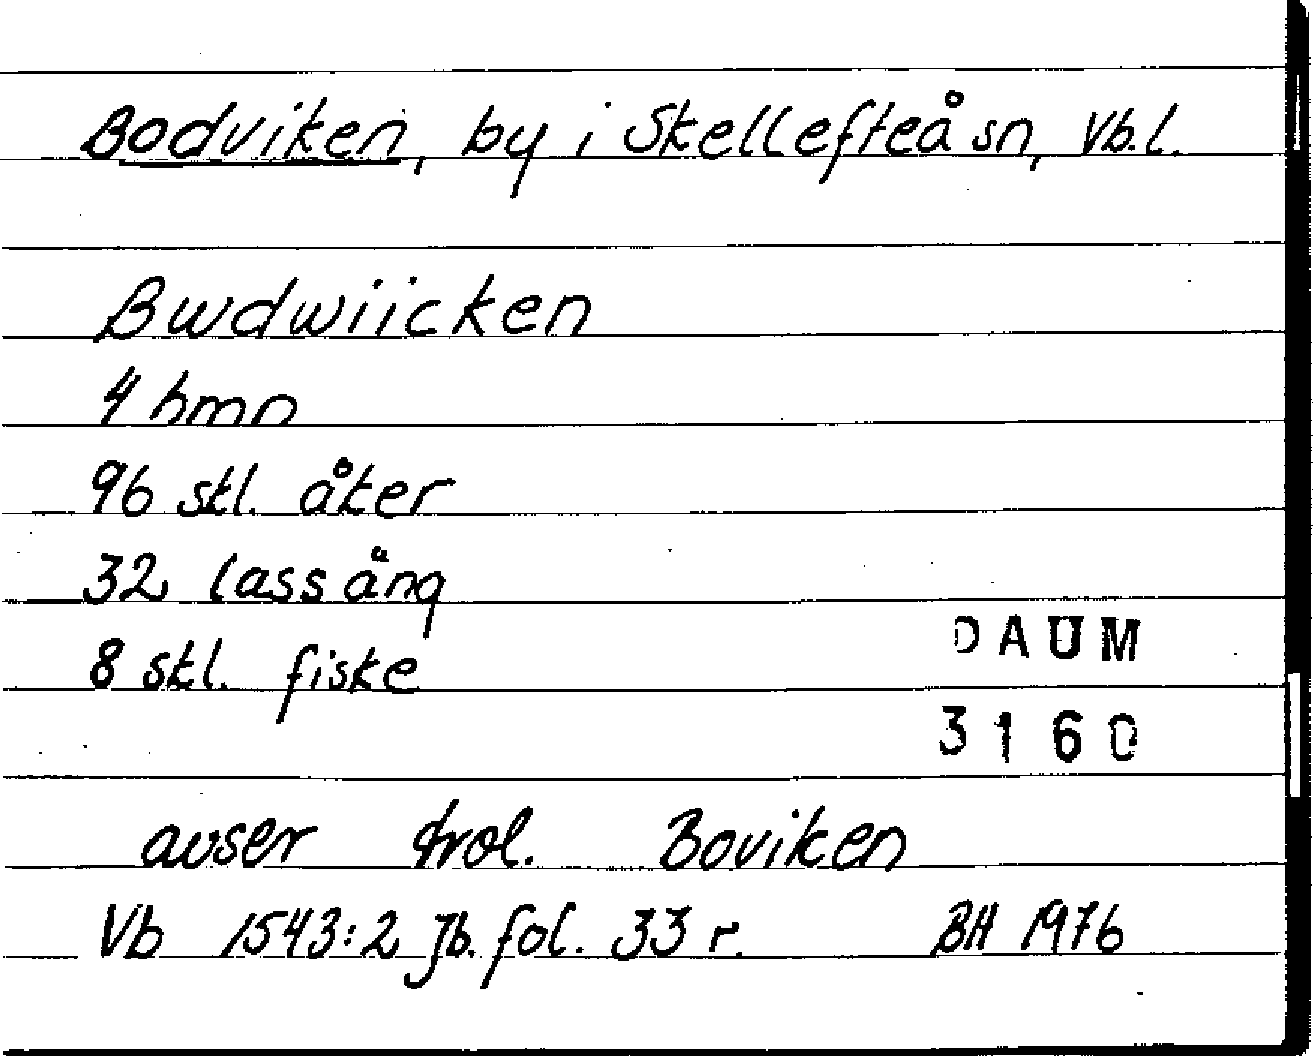 Bodviken, by i Skellefteå sn, Vb.l.
Bwdwiicken
4 hmn
96 skl. åker
32 lass äng
8 skl. fiske
DAUM
3160
avser trol. Boviken
Vb 1543:2 Jb. fol. 33 r. BH 1976